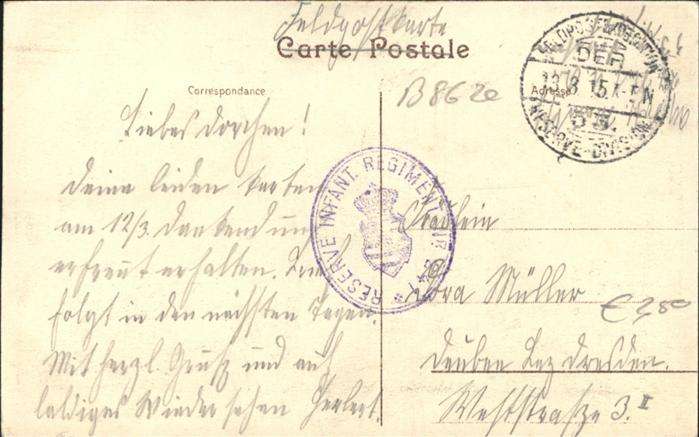 Feldpostkarte
Carte Postale
Correspondance
Adresse
B 862e
FELDPOSTEXPEDITION
DER
13 3 15. 4-5 N
53.
RESERVE-DIVISION
Liebes Dorchen!
Deine beiden Karten
am 12/3. dankend und
erfreut erhalten. Brief
folgt in den nächsten Tagen.
Mit herzl. Gruß und auf
baldiges Wiedersehen Herbert.
RESERVE INFANT. REGIMENT NR. 242
Fräulein
Dora Müller
Deuben Bez Dresden.
Weststrasze 3. II
€ 2,80